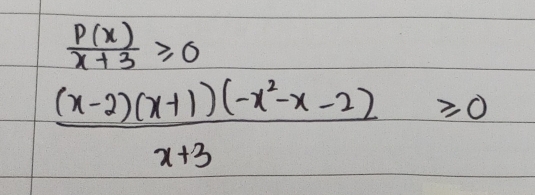 P(x)/x+3 ≥ 0
(x-2)(x+1)(-x²-x-2)/x+3 ≥ 0